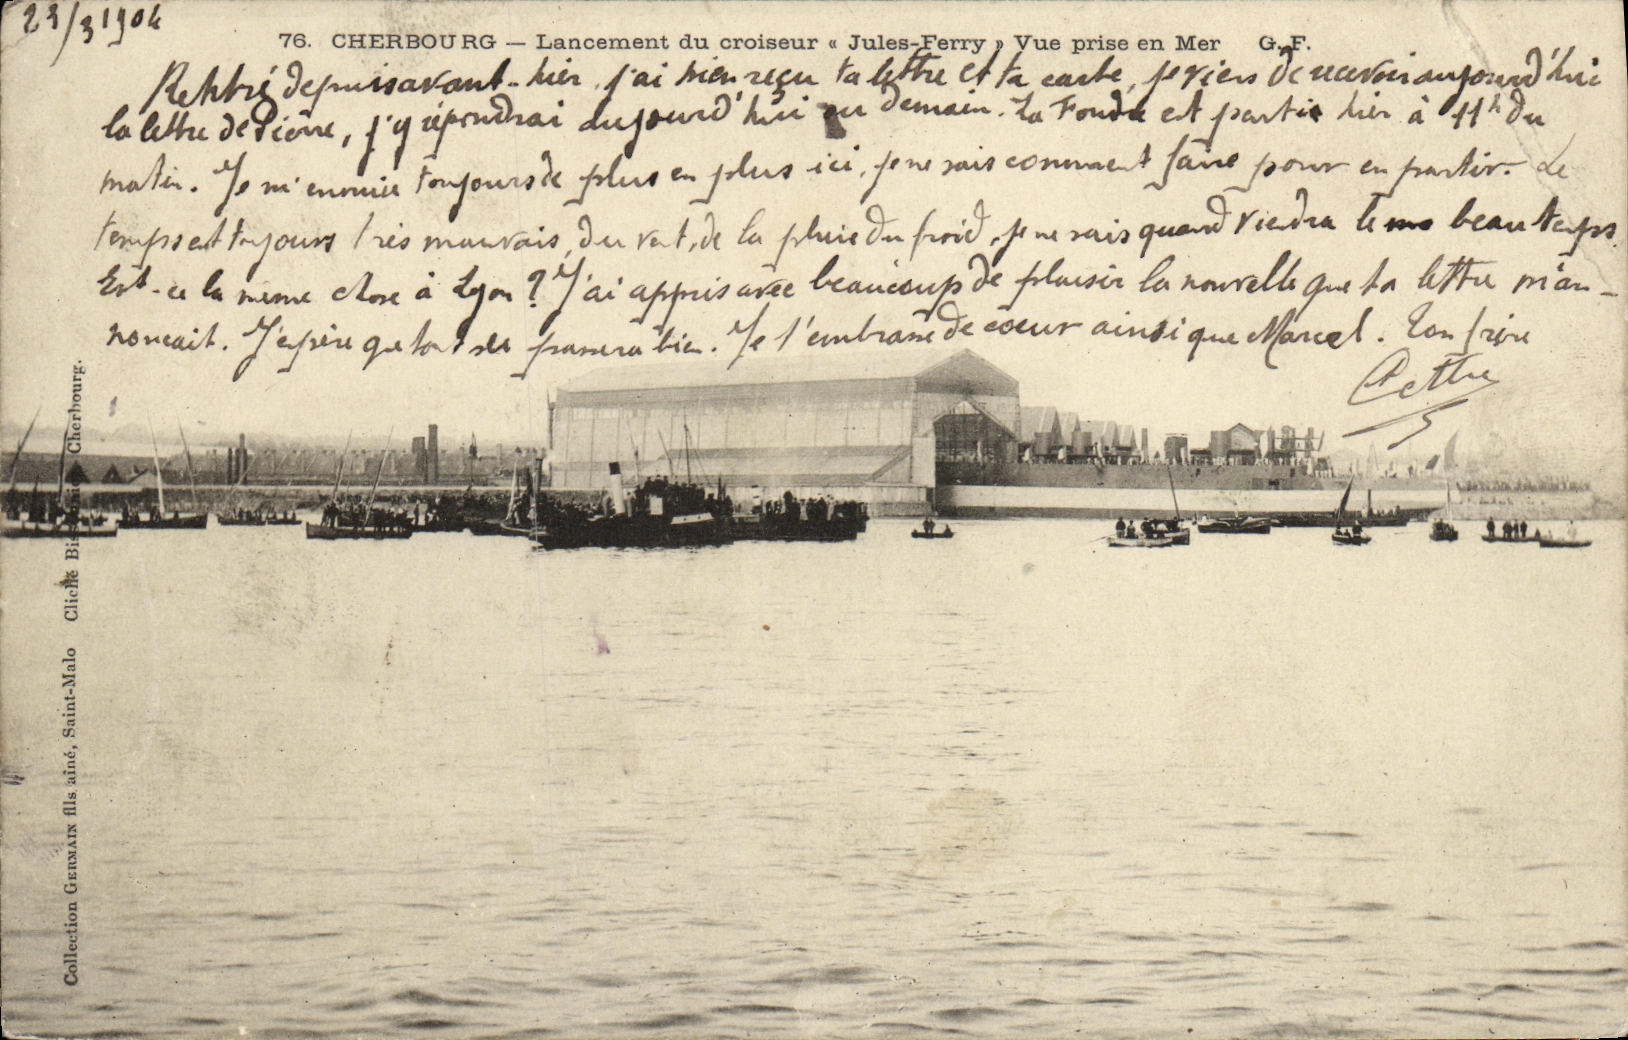 23/3 1904
76. CHERBOURG — Lancement du croiseur « Jules-Ferry » Vue prise en Mer G. F.
Rentré depuis avant-hier, j'ai bien reçu ta lettre et ta carte, je viens de recevoir aujourd'hui
la lettre de Pierre, j'y répondrai aujourd'hui ou demain. La Foudre est partie hier à 11h du
matin. Je m'ennuie toujours de plus en plus ici, je ne sais comment faire pour en partir. Le
temps est toujours très mauvais, du vent, de la pluie du froid, je ne sais quand viendra le beau temps.
Est-ce la même chose à Lyon ? J'ai appris avec beaucoup de plaisir la nouvelle que ta lettre m'an-
noncait. J'espère que tout se passera bien. Je t'embrasse de coeur ainsi que Marcel. Ton frère
Collection GERMAIN fils aîné, Saint-Malo Cliché Cherbourg.